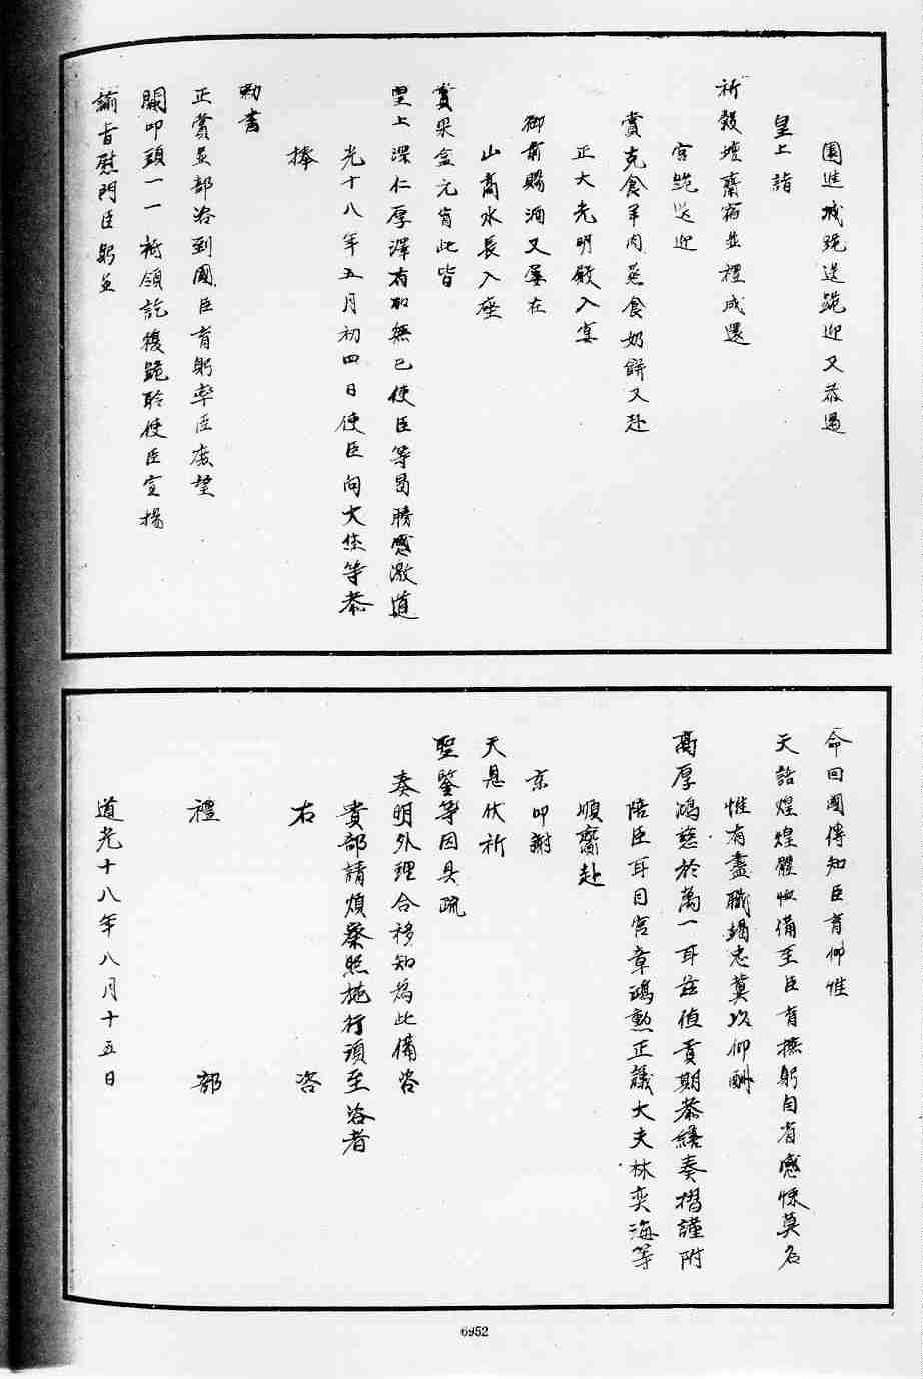 園進城跪送跪迎又恭遇
皇上詣
祈穀壇齋宿並禮成還
宮跪送迎
賞克食羊肉蒸食奶餅又赴
正大光明殿入宴
御前賜酒又屢在
山高水長入座
賞果盒元宵此皆
聖上深仁厚澤有加無已使臣等曷勝感激道
光十八年五月初四日使臣向大烋等恭
捧
勅書
正賞並部咨到國臣育躬率臣庶望
闕叩頭一一祗領訖復跪聆使臣宣揚
諭旨慰問臣躬並
命回國傳知臣育仰惟
天語煌煌體恤備至臣育撫躬自省感悚莫名
惟有盡職竭忠冀以仰酬
高厚鴻慈於萬一耳茲值貢期恭繕奏摺謹附
陪臣耳目官章鴻勲正議大夫林奕海等
順齎赴
京叩謝
天恩伏祈
聖鑒等因具疏
奏明外理合移知為此備咨
貴部請煩察照施行須至咨者
右咨
禮部
道光十八年八月十五日
6952